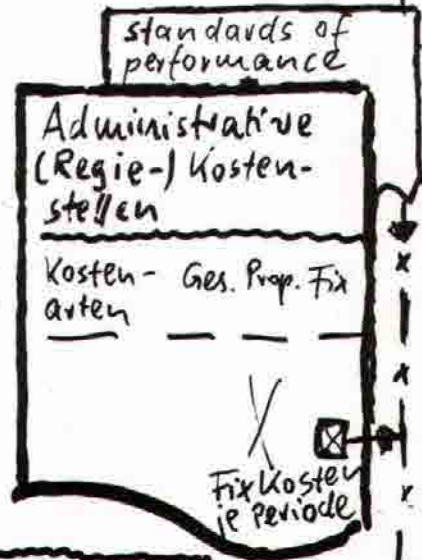 standards of
performance
Administrative
(Regie-) Kosten-
stellen
Kosten- Ges. Prop. Fix
arten
Fixkosten
je Periode